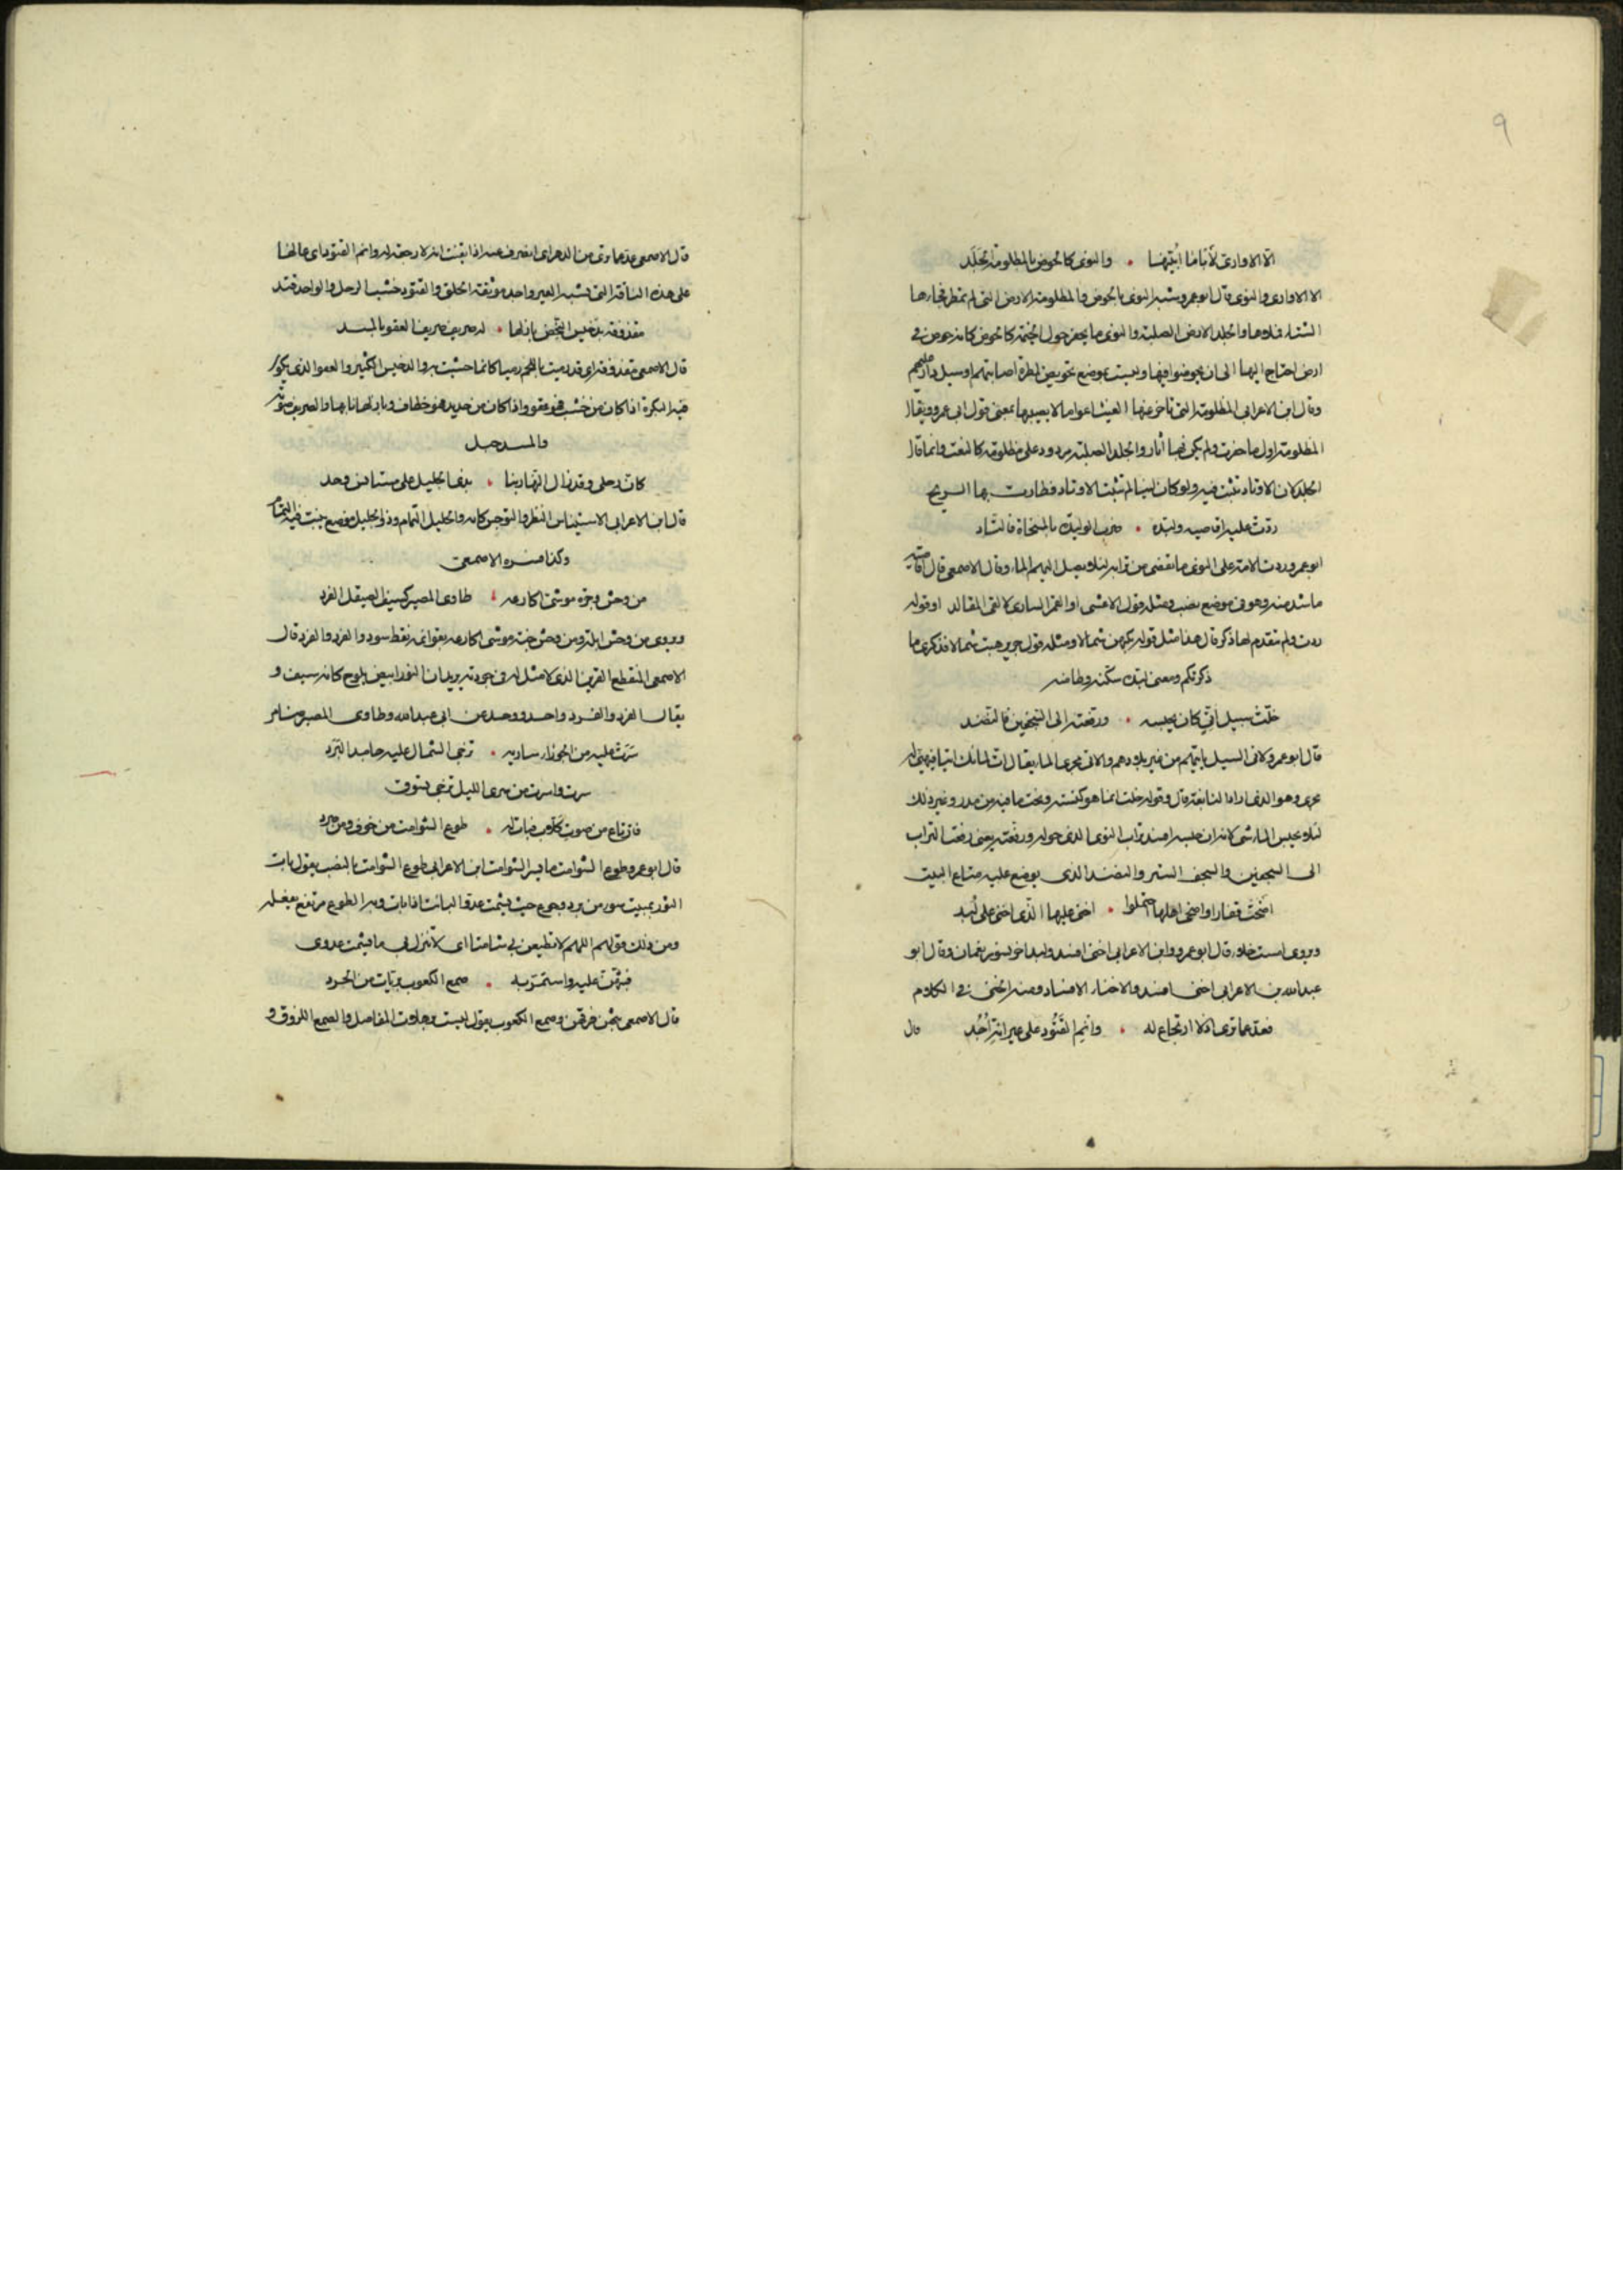 ٩
الا الاوارى لأيا ما ابينها • والنوى كالحوض بالمظلومة الجلد
الا الاوارى والنوى قال ابو عمرو يشبه النوى بالحوض والمظلومة الارض التى لم تمطر فجارها
الشتاء فلاوها والجلد الارض الصلبة والنوى ما يحفر حول الخيمة كالحوض كانه حوض فى
ارض احتاج اليها الى ان يحوضوا فيها وليست بموضع تحويض لمطرة اصابتهم او سيل دارهم
وقال ابن الاعرابى المظلومة التى تاخر عنها الغيث اعواما لا يصيبها بمعنى قول ابى عمرو ويقال
المظلومة اول ما حفرت ولم يكن فيها اثار والجلد الصلبة مردود على مظلومة كالنعت وانما قال
الجلد لان الاوتاد تثبت فيه ولو كان لينا لم تثبت الاوتاد فطارت بها الريح
ردت عليه اقاصيه ولبده • ضرب الوليدة بالمسحاة فالثاد
ابو عمرو ردت الامة على النوى ما تقضى من ترابه لئلا يصل اليهم الماء وقال الاصمعى قال اقاصيه
ما شد منه وهو فى موضع نصب ومثله قول الاعشى او القمر السارى لالقى المقالد او قوله
ردت ولم يتقدم لها ذكر قال هذا مثل قوله يكبهن شمالا ومثله قول جرير هبت شمالا فذكرى ما
ذكرتكم ومعنى لبده سكنه وطامنه
خلت سبيل اتى كان يحبسه • ورفعته الى السجفين فالنضد
قال ابو عمرو الاتى السيل ياتيهم من غير بلادهم والاتى مجرى الماء يقال ات لمائك اتيا فيهيئ له
مجرى وهو الذى اراد النابغة قال وقوله خلت انما هو كنسته ونحت ما فيه من مدر وغير ذلك
لئلا يحبس الماء شى لانه ان حبسه افسد تراب النوى الذى حوله ورفعته يعنى رفعت التراب
الى السجفين والسجف الستر والنضد الذى يوضع عليه متاع البيت
اضحت قفارا واضحى اهلها احتملوا • اخنى عليها الذى اخنى على لبد
ويروى امست خلاء قال ابو عمرو وابن الاعرابى اخنى افسد ولبد اخر نسور لقمان وقال ابو
عبد الله بن الاعرابى اخنى افسد والاخناء الافساد ومنه الخنى فى الكلام
فعد عما ترى اذ لا ارتجاع له • وانم القتود على عيرانة اجد
قال
قال الاصمعى عد عما ترى من الدهر اى انصرف عنه اذا ايقنت انه لا رجعة له وانم القتود اى عالها
على هذه الناقة التى تشبه العير واجد موثقة الخلق والقتود خشب الرحل والواحد قتد
مقذوفة بدخيس النحض بازلها • له صريف صريف القعو بالمسد
قال الاصمعى مقذوفة اى قد رميت باللحم رميا كانما حشيت به والدخيس الكثير والقعو الذى يكون
فيه البكرة اذا كان من خشب فهو قعو واذا كان من حديد فهو خطاف وبازلها نابها والصريف صوته
والمسد حبل
كان رحلى وقد زال النهار بنا • بذى الجليل على مستانس وحد
قال ابن الاعرابى الاستيناس النظر والتوجس كانه والجليل الثمام وذو الجليل موضع ينبت فيه الثمام
وكذا فسره الاصمعى
من وحش وجرة موشى اكارعه • طاوى المصير كسيف الصيقل الفرد
ويروى من وحش ايلة ومن وحش خبة موشى اكارعه بقوائمه نقط سود والفرد والفرد قال
الاصمعى المنقطع القرين الذى لا مثل له فى جودته يريد ان الثور ابيض يلوح كانه سيف و
يقال الفرد والفرد واحد ووحد عن ابى عبد الله وطاوى المصير ضامر
سرت عليه من الجوزاء سارية • تزجى الشمال عليه جامد البرد
سرت واسرت من سرى الليل تزجى تسوق
فارتاع من صوت كلاب فبات له • طوع الشوامت من خوف ومن صرد
قال ابو عمرو طوع الشوامت ما يسر الشوامت ابن الاعرابى طوع الشوامت بالنصب يقول بات
الثور بمبيت سوء من برد وجوع حيث يشمت عدو البائت اذا بات وبه الطوع مرتفع بفعله
ومن ذلك قولهم اللهم لا تطيعن بى شامتا اى لا تنزل بى ما يشمت عدوى
فبثهن عليه واستمر به • صمع الكعوب بريات من الحرد
قال الاصمعى بثهن فرقهن وصمع الكعوب يقول ليست برهلات المفاصل والصمع اللزوق و